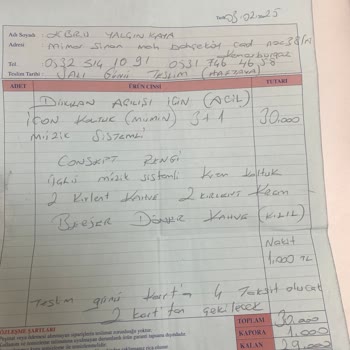 Tarih 03.02.2025
Adı Soyadı :
Adresi : Mimar Sinan mah Bahçeköy cad no=38/A
Tel : 0532 514 1091 0531 746 46 56
Teslim Tarihi : SALI GÜNÜ TESLİM
ADET ÜRÜN CİNSİ TUTARI
DÜKKAN AÇILIŞI İÇİN (ACİL)
İCON KOLTUK 3+1 30.000
MÜZİK SİSTEMLİ
CONSEPT RENGİ
üçlü müzik sistemli Krem koltuk
2 Kırlent KAHVE 2 KIRLENT Krem
BERJER DÖNER KAHVE
Nakit
1.000 TL
Teslim günü Kart'a 4 Taksit olucak
2 kart'tan çekilecek
SÖZLEŞME ŞARTLARI
TOPLAM 30.000
KAPORA 1.000
KALAN 29.000